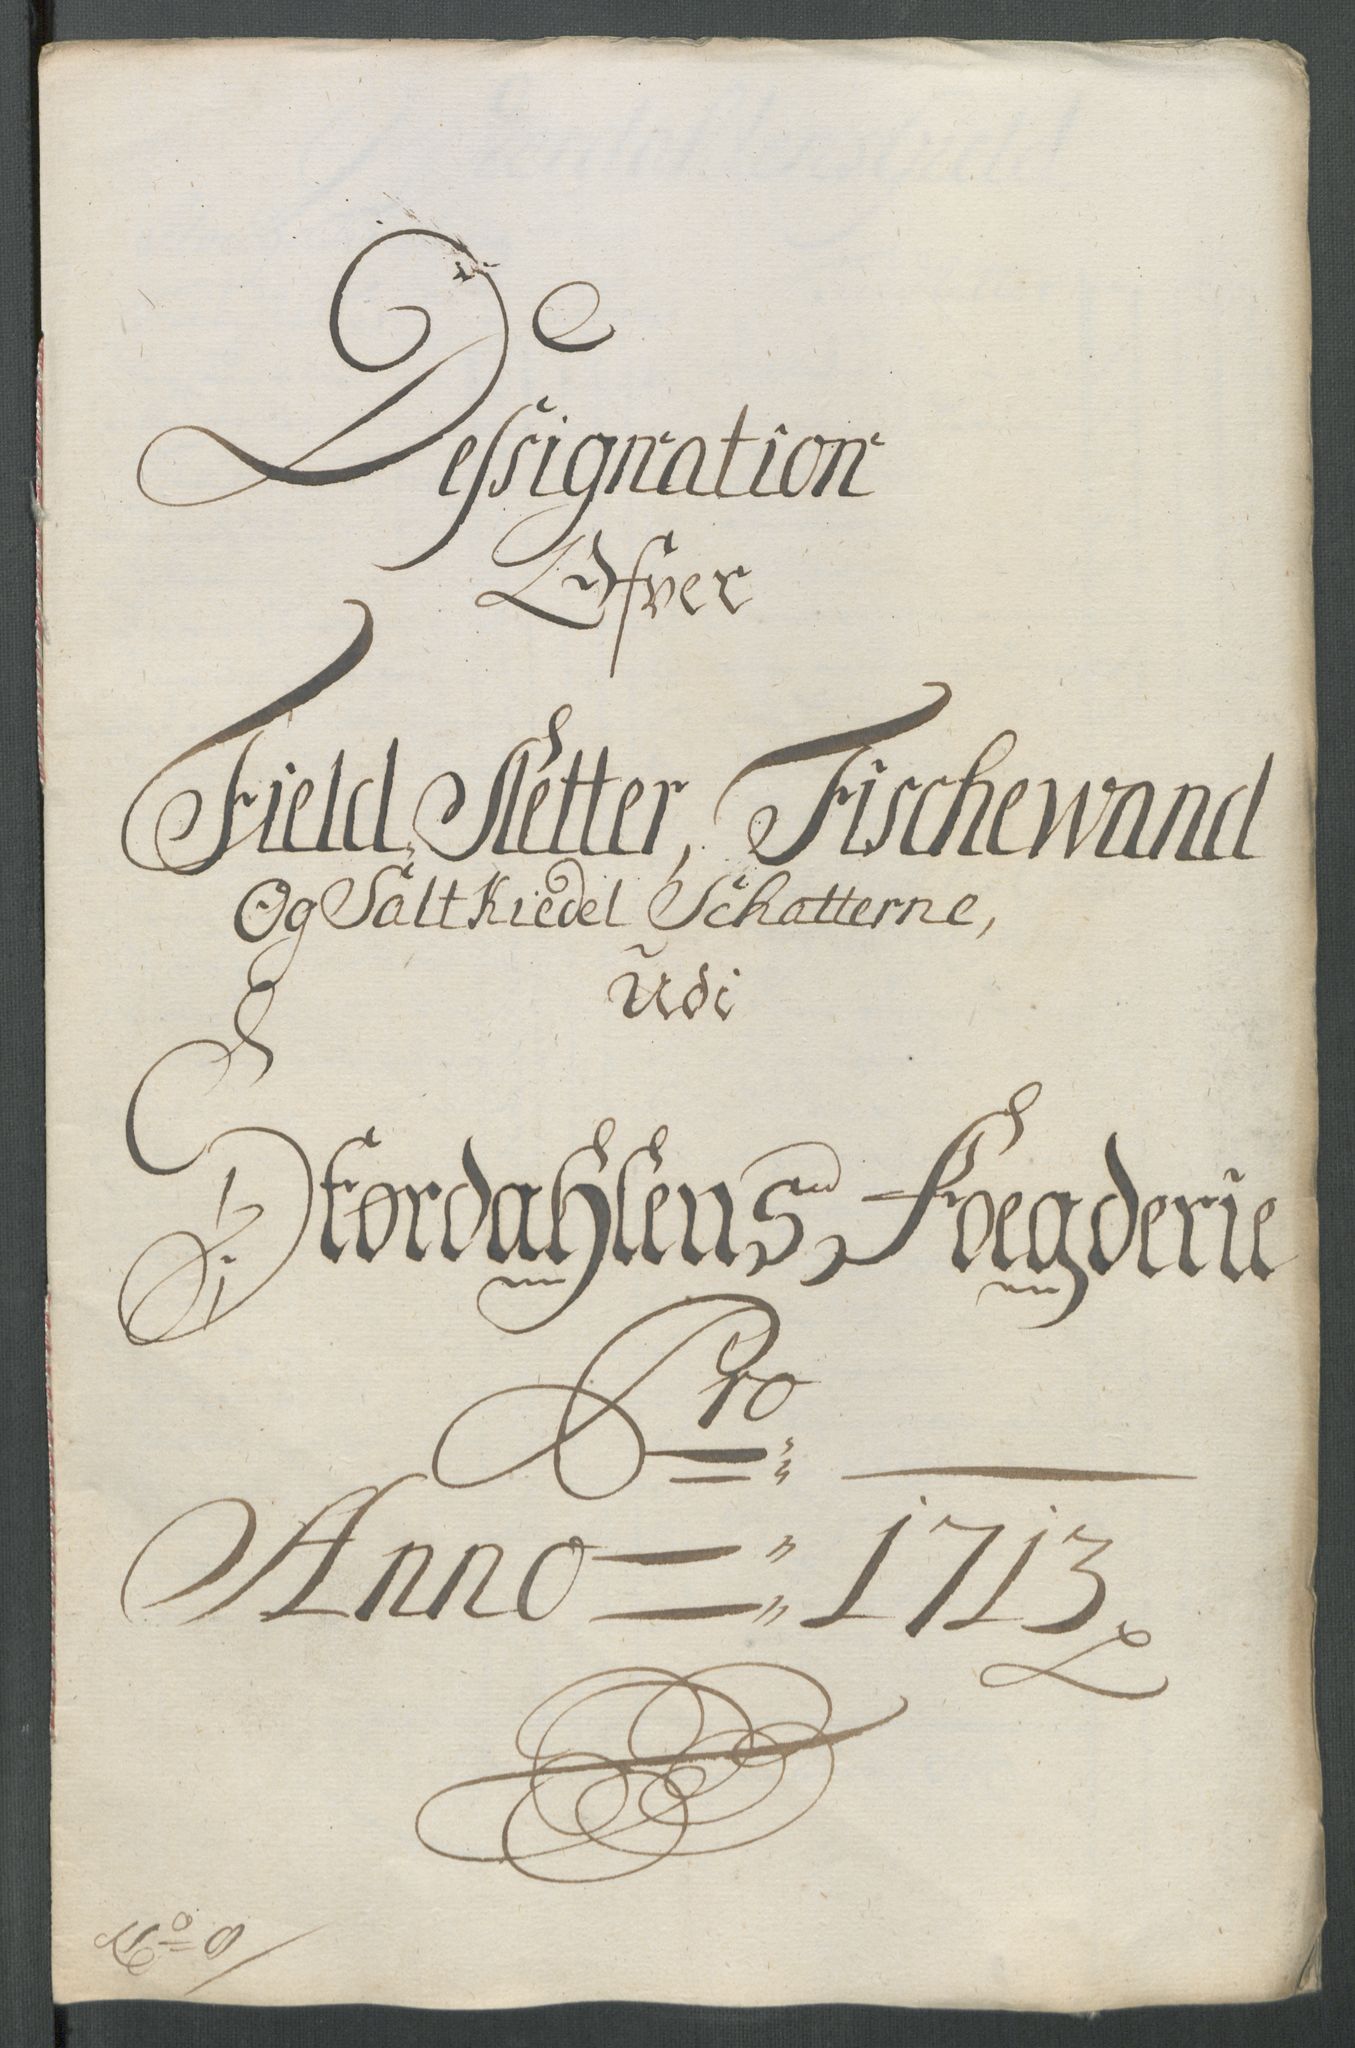 Dessignation
Ofver
Field Sletter, Fischewand
Og Salt Kiedel Schatterne,
Udi
Stordahlens Foegderie
Pro
Anno 1713